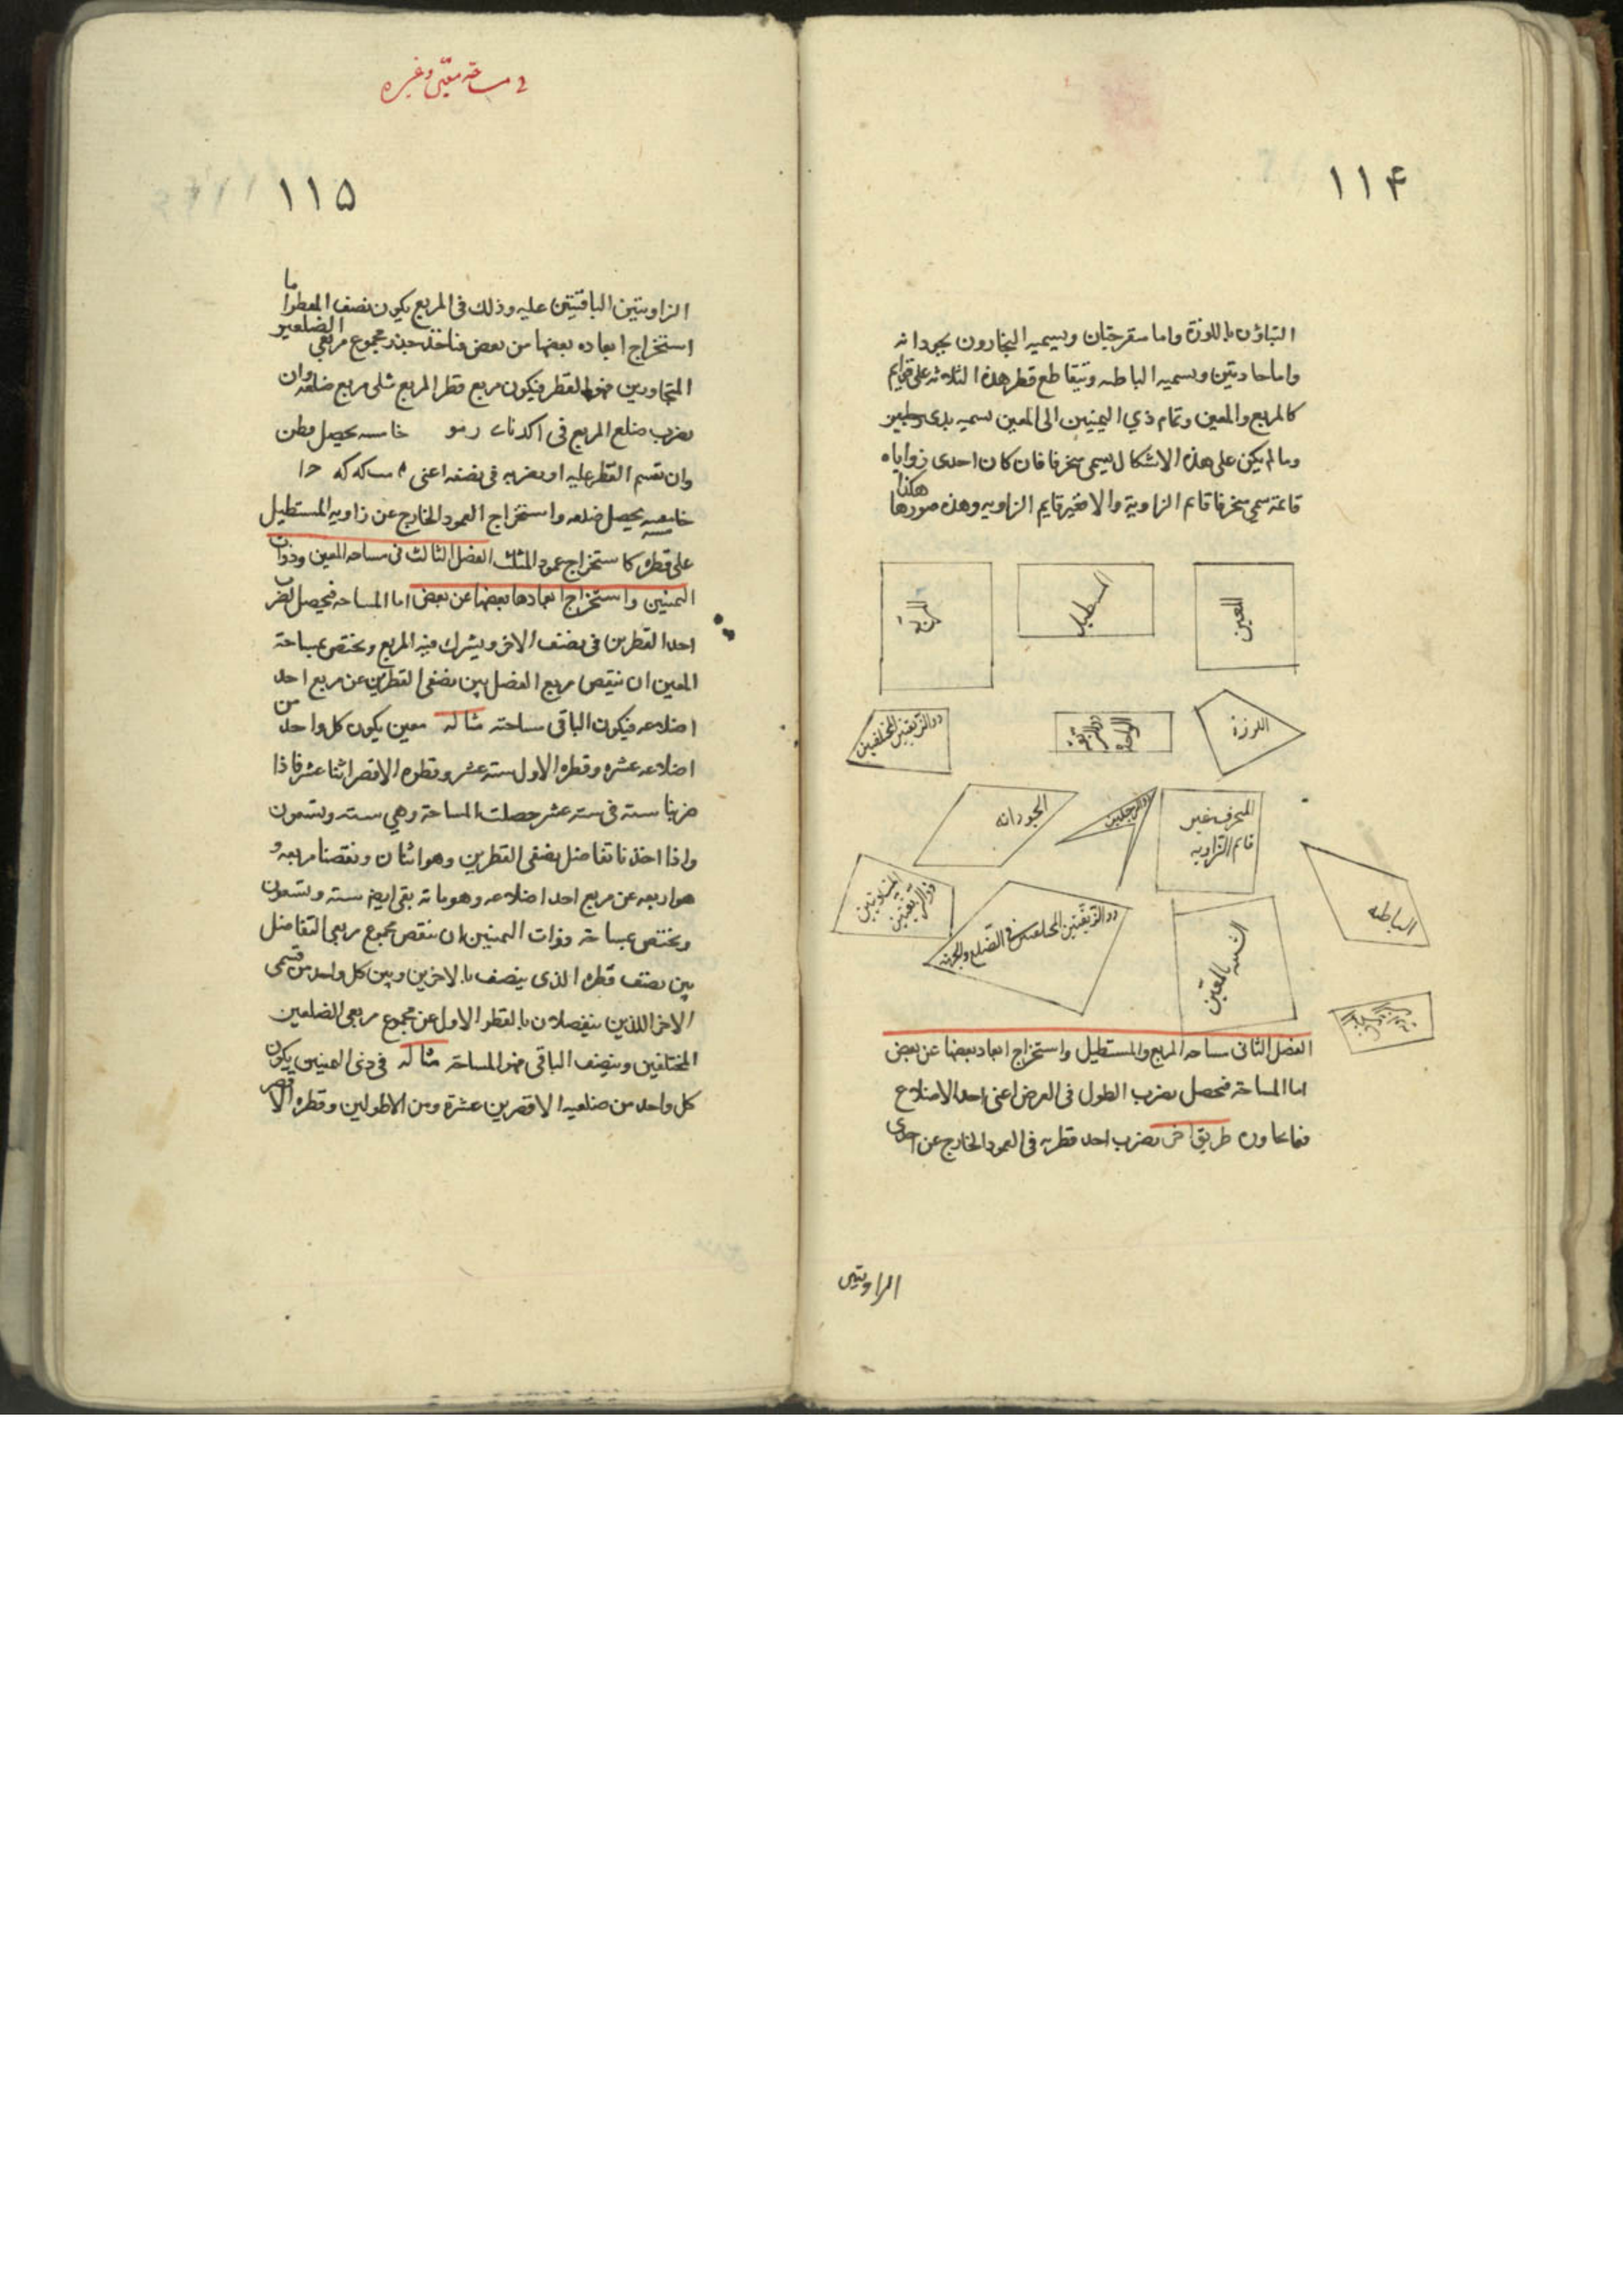 ١١۴
البناؤن باللوزة واما منفرجتان ويسميه النجارون بجودانه
واما حادتين ويسميه الباطيه ويتقاطع قطر هذه الثلاثة على قوايم
كالمربع والمعين وتمام ذي اليمنيين الى المعين نسميه بذى رجلين
وما لم يكن على هذه الاشكال يسمى منحرفا فان كان احدى زواياه
قائمة سمي منحرفا قائم الزاوية والا فغير قايم الزاويه وهذه صورها
هكذا
المعين
المستطيل
المربع
اللوزة
ذو الزنقة الواحدة
ذو الزنقتين المختلفتين
المنحرف غير قائم الزاويه
ذو الرجلين
الجودانه
الباطيه
الشبيه بالمعين
ذو الزنقتين المختلفتين فى الضلع والجهة
ذو الزنقتين المتساويتين
الفصل الثانى مساحه المربع والمستطيل واستخراج ابعاد بعضها عن بعض
اما المساحة فتحصل بضرب الطول فى العرض اعنى احد الاضلاع
فيما يجاوره طريق اخر نضرب احد قطريه فى العمود الخارج عن احدى
الزاويتين
د مساحة معين وغيره
١١۵
الزاويتين الباقيتين عليه وذلك فى المربع يكون نصف القطر اما
استخراج ابعاده بعضها من بعض فناخذ جذر مجموع مربعي الضلعين
المتجاورين فهو القطر فيكون مربع قطر المربع مثلى مربع ضلعه وان
نضرب ضلع المربع فى ا كد خامسه يحصل قطره
وان نقسم القطر عليه او نضربه فى نصفه اعنى
خامسه يحصل ضلعه واستخراج العمود الخارج عن زاويه المستطيل
على قطره كاستخراج عمود المثلث الفصل الثالث فى مساحه المعين وذوات
اليمنين واستخراج ابعادها بعضها عن بعض اما المساحه فتحصل بضرب
احد القطرين فى نصف الاخر ويشرك فيه المربع ويختص بمساحة
المعين ان ننقص مربع الفضل بين نصفى القطرين عن مربع احد
اضلاعه فيكون الباقى مساحته مثاله معين يكون كل واحد من
اضلاعه عشره وقطره الاول سته عشر وقطره الاقصر اثنا عشر فاذا
ضربنا سته فى سته عشر حصلت المساحة وهي سته وتسعون
واذا اخذنا تفاضل نصفى القطرين وهو اثنان ونقصنا مربعه و
هو اربعه عن مربع احد اضلاعه وهو مائة بقى ايضا سته وتسعون
ويختص بمساحة ذوات اليمنين ان ننقص مجموع مربعي التفاضل
بين نصف قطره الذى ينصف بالاخرين وبين كل واحد من قسمى
الاخر اللذين ينفصلان بالقطر الاول عن مجموع مربعي الضلعين
المختلفين وننصف الباقى فهو المساحة مثاله فى ذى اليمنين يكون
كل واحد من ضلعيه الاقصرين عشرة ومن الاطولين وقطره الاقصر